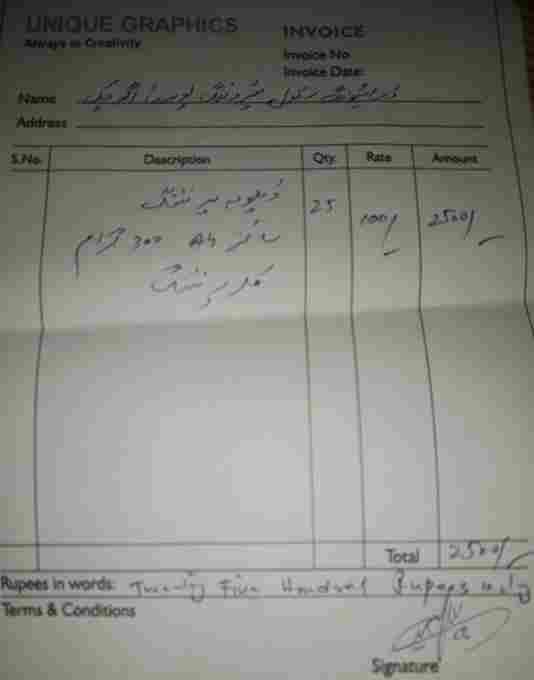 UNIQUE GRAPHICS
Always in Creativity
INVOICE
Invoice No
Invoice Date:
Name
Address
S.No. Description Qty. Rate Amount
پرنٹنگ 25 100/- 2500/-
سائز A4 300 گرام
کلر پرنٹنگ
Total 2500/-
Rupees in words: Twenty Five Hundred Rupees only
Terms & Conditions
Signature